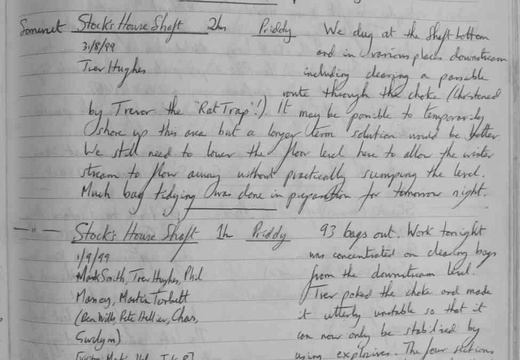 Somerset Stock's House Shaft 2hr Priddy We dug at the shaft bottom
31/8/99 and in various places downstream
Trev Hughes including clearing a possible
route through the choke (christened
by Trevor the "Rat Trap"!). It may be possible to temporarily
shore up this area but a longer term solution would be better
We still need to lower the floor level here to allow the winter
stream to flow away without practically sumping the level.
Much bag tidying was done in preparation for tomorrow night.
— " — Stock's House Shaft 1h Priddy 93 bags out. Work tonight
1/9/99 was concentrated on clearing bags
Mark Smith, Trev Hughes, Phil from the downstream level.
Massey, Martin Torbett Trev poked the choke and made
(Ben Wills, Pete Hellier, Chas, it utterly unstable so that it
can now only be stabilised by
using explosives. The four sections